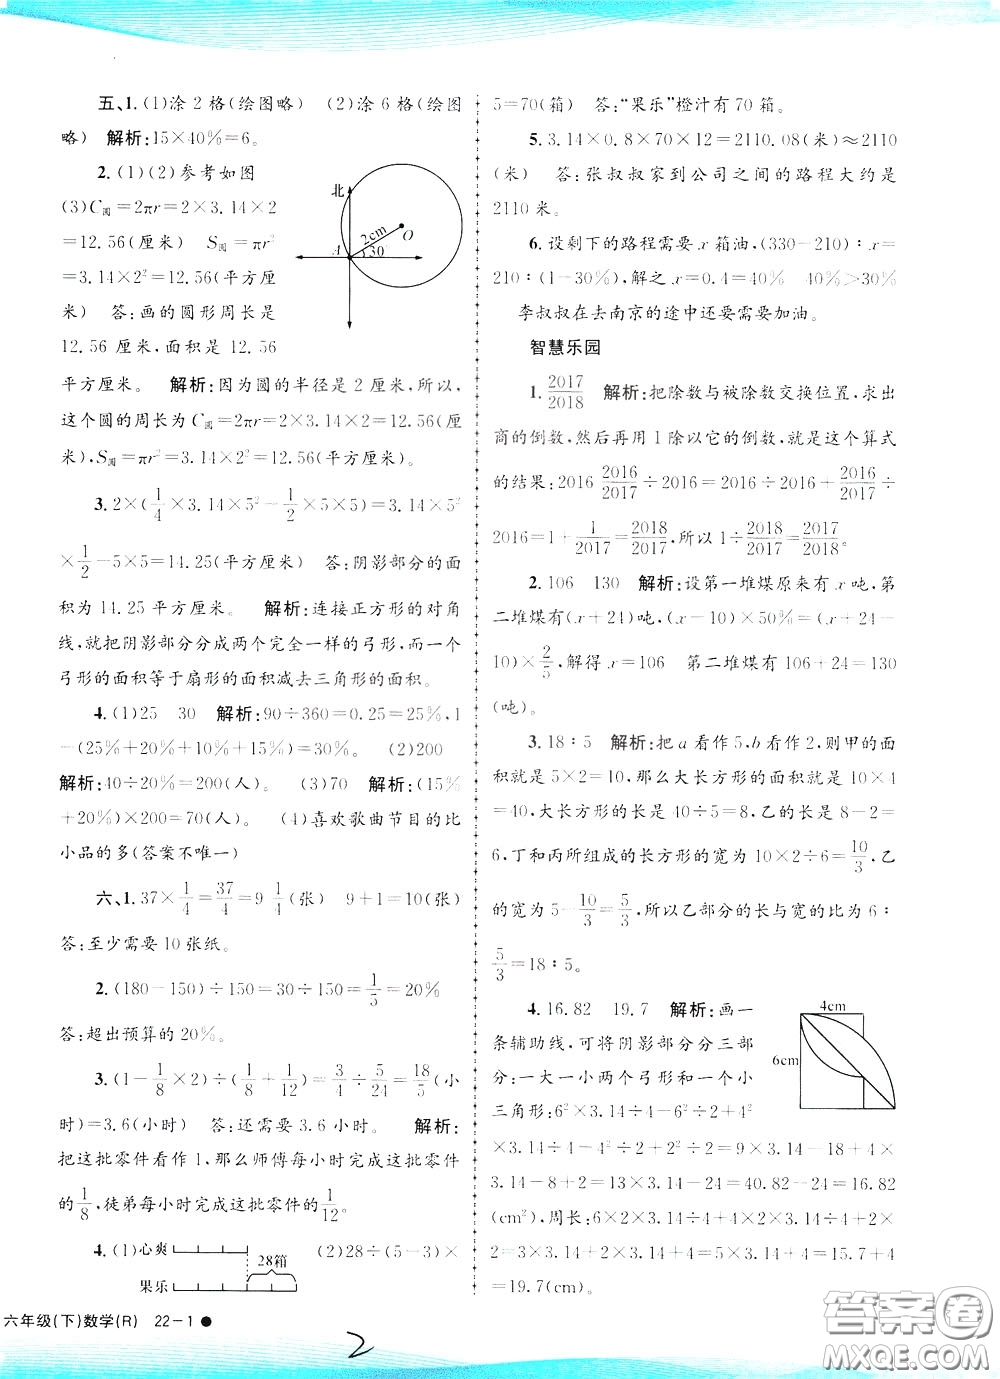 五、1.(1)涂 2 格(绘图略) (2)涂 6 格(绘图
略) 解析:15×40%=6。
2.(1)(2)参考如图
(3)C圆=2πr=2×3.14×2
=12.56(厘米) S圆=πr²
=3.14×2²=12.56(平方厘
米) 答:画的圆形周长是
12.56 厘米,面积是 12.56
北
2cm
O
A
30
平方厘米。 解析:因为圆的半径是 2 厘米,所以,
这个圆的周长为 C圆=2πr=2×3.14×2=12.56(厘
米),S圆=πr²=3.14×2²=12.56(平方厘米)。
3.2×(1/4×3.14×5²-1/2×5×5)=3.14×5²
×1/2-5×5=14.25(平方厘米) 答:阴影部分的面
积为 14.25 平方厘米。 解析:连接正方形的对角
线,就把阴影部分分成两个完全一样的弓形,而一个
弓形的面积等于扇形的面积减去三角形的面积。
4.(1)25 30 解析:90÷360=0.25=25%,1
-(25%+20%+10%+15%)=30%。 (2)200
解析:40÷20%=200(人)。 (3)70 解析:(15%
+20%)×200=70(人)。 (4)喜欢歌曲节目的比
小品的多(答案不唯一)
六、1.37×1/4=37/4=9 1/4(张) 9+1=10(张)
答:至少需要 10 张纸。
2.(180-150)÷150=30÷150=1/5=20%
答:超出预算的 20%。
3.(1-1/8×2)÷(1/8+1/12)=3/4÷5/24=18/5(小
时)=3.6(小时) 答:还需要 3.6 小时。 解析:
把这批零件看作 1,那么师傅每小时完成这批零件
的1/8,徒弟每小时完成这批零件的1/12。
4.(1)心爽 (2)28÷(5-3)×
28箱
果乐
5=70(箱) 答:“果乐”橙汁有 70 箱。
5.3.14×0.8×70×12=2110.08(米)≈2110
(米) 答:张叔叔家到公司之间的路程大约是
2110 米。
6.设剩下的路程需要 x 箱油,(330-210)∶x=
210∶(1-30%),解之 x=0.4=40% 40%>30%
李叔叔在去南京的途中还要需要加油。
智慧乐园
1.2017/2018 解析:把除数与被除数交换位置,求出
商的倒数,然后再用 1 除以它的倒数,就是这个算式
的结果:2016 2016/2017÷2016=2016÷2016+2016/2017÷
2016=1+1/2017=2018/2017,所以 1÷2018/2017=2017/2018。
2.106 130 解析:设第一堆煤原来有 x 吨,第
二堆煤有(x+24)吨,(x-10)×50%=(x+24-
10)×2/5,解得 x=106 第二堆煤有 106+24=130
(吨)。
3.18∶5 解析:把 a 看作 5,b 看作 2,则甲的面
积就是 5×2=10,那么大长方形的面积就是 10×4
=40,大长方形的长是 40÷5=8,乙的长是 8-2=
6,丁和丙所组成的长方形的宽为 10×2÷6=10/3,乙
的宽为 5-10/3=5/3,所以乙部分的长与宽的比为 6∶
5/3=18∶5。
4.16.82 19.7 解析:画一
条辅助线,可将阴影部分分三部
分:一大一小两个弓形和一个小
三角形:6²×3.14÷4-6²÷2+4²
4cm
6cm
×3.14÷4-4²÷2+2²÷2=9×3.14-18+4×
3.14-8+2=13×3.14-24=40.82-24=16.82
(cm²),周长:6×2×3.14÷4+4×2×3.14÷4+2×
2=3×3.14+2×3.14+4=5×3.14+4=15.7+4
=19.7(cm)
六年级(下)数学(R) 22-1
2
答案圈
MXQE.COM